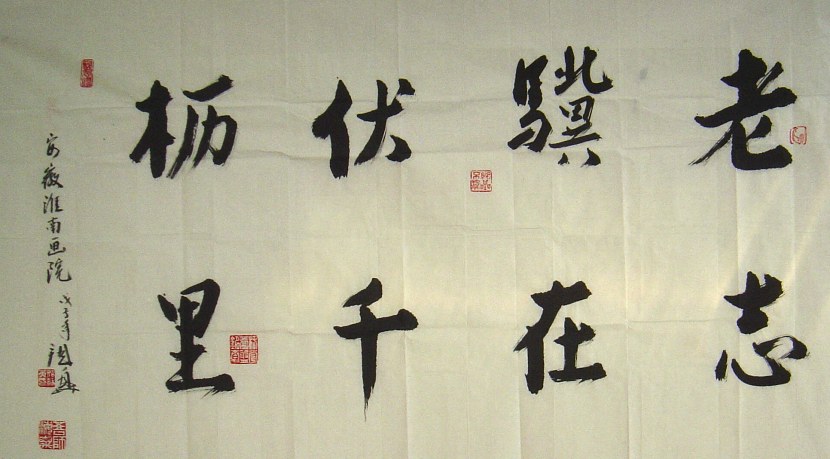 老骥伏枥
志在千里
安徽淮南画院
戊子年